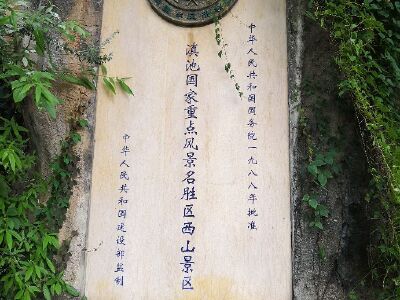 中华人民共和国国务院一九八八年批准
滇池国家重点风景名胜区西山景区
中华人民共和国建设部监制